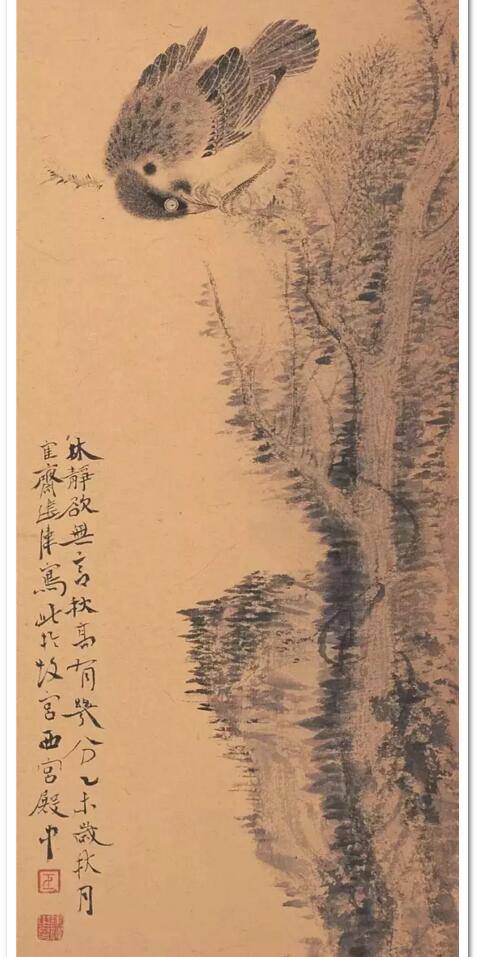 林靜欲無言秋高有分乙未歲秋月
齋寫此於故宮西宮殿中